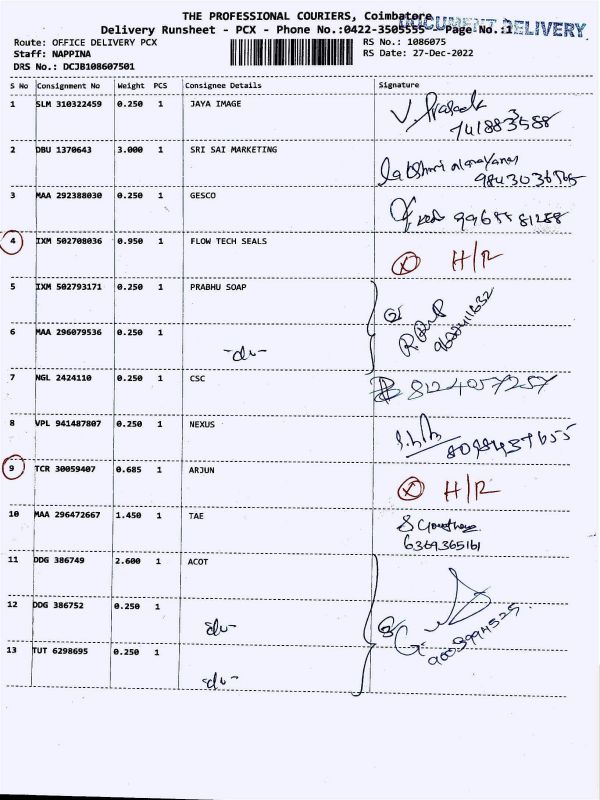 THE PROFESSIONAL COURIERS, Coimbatore
DOCUMENT DELIVERY
Delivery Runsheet - PCX - Phone No.:0422-3505555 - Page No.:1
Route: OFFICE DELIVERY PCX RS No.: 1086075
Staff: NAPPINA RS Date: 27-Dec-2022
DRS No.: DCJB108607501
S No Consignment No Weight PCS Consignee Details Signature
1 SLM 310322459 0.250 1 JAYA IMAGE
7418833588
2 DBU 1370643 3.000 1 SRI SAI MARKETING
3 MAA 292388030 0.250 1 GESCO
4 IXM 502708036 0.950 1 FLOW TECH SEALS X H/R
5 IXM 502793171 0.250 1 PRABHU SOAP
6 MAA 296079536 0.250 1
-do-
7 NGL 2424110 0.250 1 CSC 8124057257
8 VPL 941487807 0.250 1 NEXUS
8098439655
9 TCR 30059407 0.685 1 ARJUN X H/R
10 MAA 296472667 1.450 1 TAE
6369365161
11 DDG 386749 2.600 1 ACOT
12 DDG 386752 0.250 1
-do-
13 TUT 6298695 0.250 1
-do-